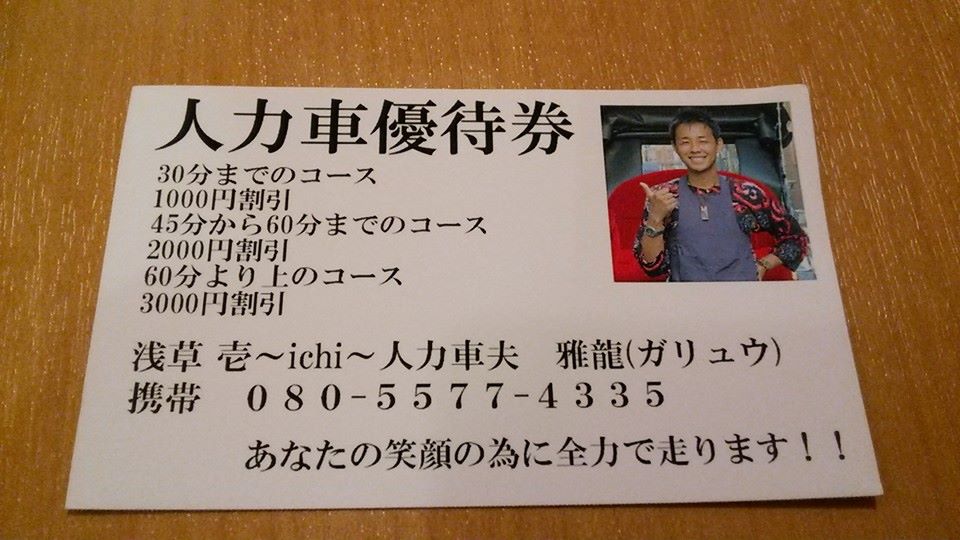 人力車優待券
30分までのコース
1000円割引
45分から60分までのコース
2000円割引
60分より上のコース
3000円割引
浅草 壱～ichi～人力車夫　雅龍(ガリュウ)
携帯　０８０−５５７７−４３３５
あなたの笑顔の為に全力で走ります！！